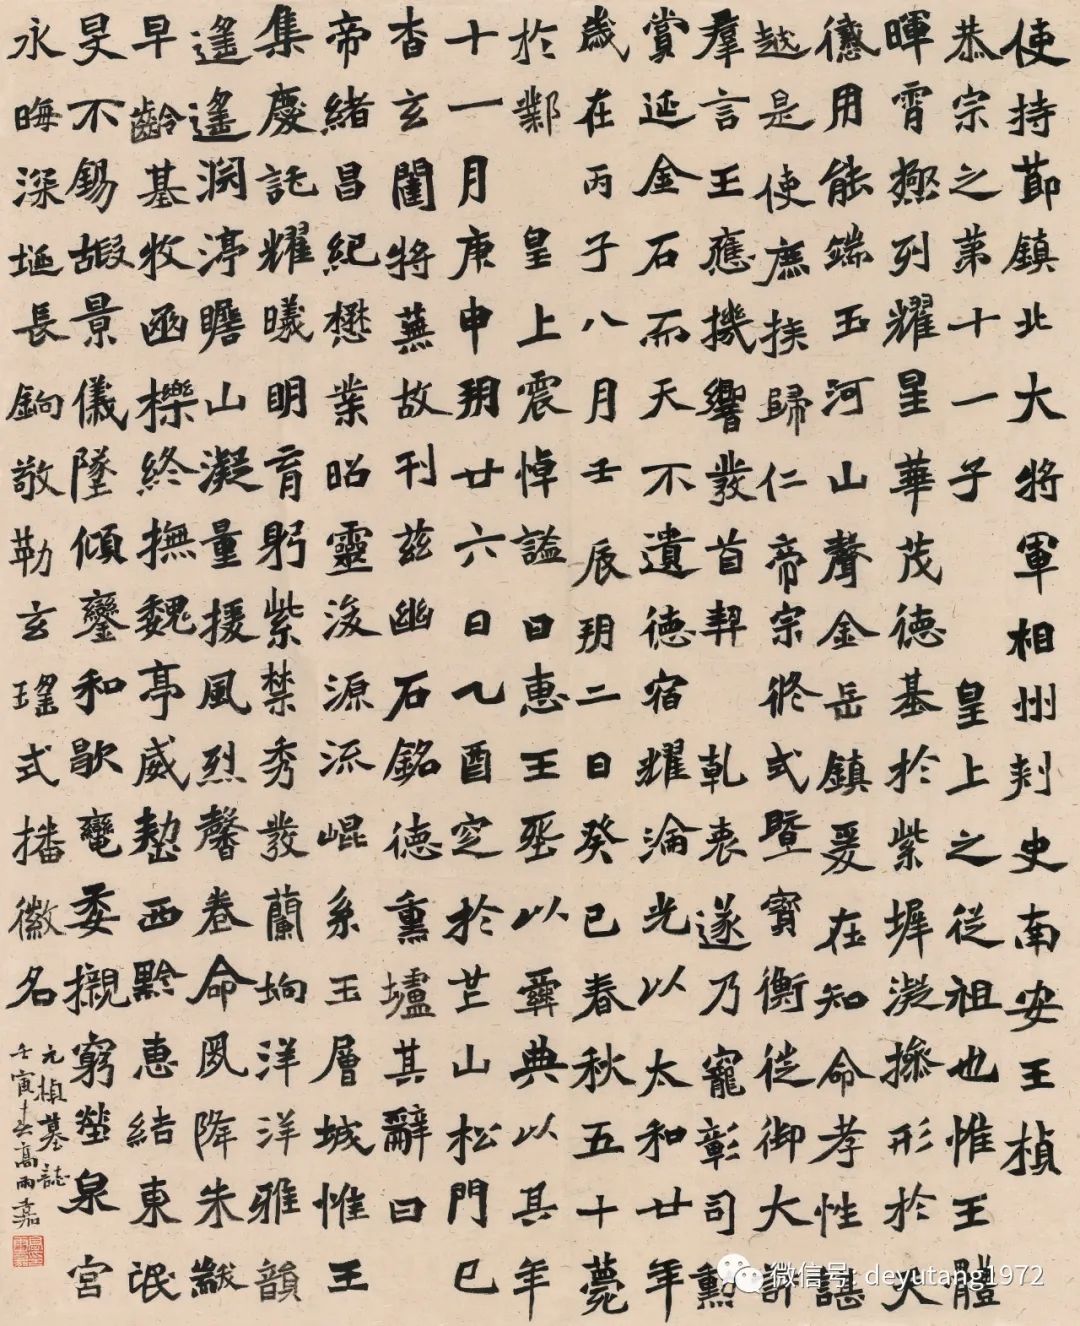 使持節鎮北大將軍相州刺史南安王楨
恭宗之第十一子 皇上之從祖也惟王體
暉霄極列耀星華茂德基於紫墀凝操形於天
德用能端玉河山聲金岳鎮爰在知命孝性諶
越是使庶族歸仁帝宗攸式暨寶衡徙御大訢
羣言王應機響發首契 乾衷遂乃寵彰司勳
賞延金石而天不遺德宿耀淪光以太和廿年
歲在丙子八月壬辰朔二日癸巳春秋五十薨
於鄴 皇上震悼謚曰惠王葬以彝典以其年
十一月庚申朔廿六日乙酉窆於芒山松門已
杳玄闥將蕪故刊茲幽石銘德熏壚其辭曰
帝緒昌紀懋業昭靈浚源流崐系玉層城惟王
集慶託耀曦明育躬紫禁秀發蘭坰洋洋雅韻
遙遙淵渟瞻山凝量援風烈馨卷命夙降朱紱
早齡基牧函櫟終撫魏亭威懃西黔惠結東氓
旻不錫嘏景儀墜傾鑾和歇轙委櫬窮塋泉宮
永晦深埏長鋦敬勒玄瑤式播徽名
元楨墓誌
壬寅高雨嘉
微信号: deyutang1972